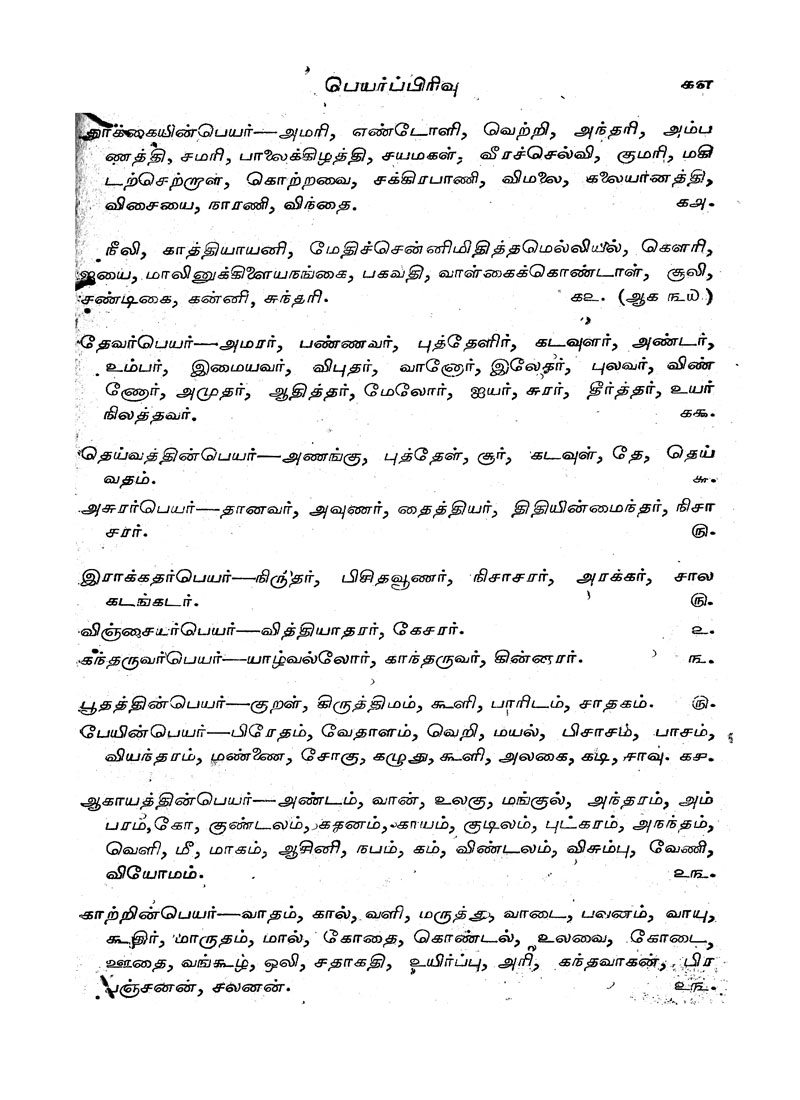 பெயர்ப்பிரிவு க௭
துர்க்கையின்பெயர்—அமரி, எண்டோளி, வெற்றி, அந்தரி, அம்ப
ணத்தி, சமரி, பாலைக்கிழத்தி, சயமகள், வீரச்செல்வி, குமரி, மகி
டற்செற்றாள், கொற்றவை, சக்கிரபாணி, விமலை, கலையார்ணத்தி,
விசையை, நாரணி, விந்தை. க௮.
நீலி, காத்தியாயனி, மேதிச்சென்னிமிதித்தமெல்லியல், கௌரி,
ஐயை, மாலினுக்கிளையநங்கை, பகவதி, வாள்கைக்கொண்டாள், சூலி,
சண்டிகை, கன்னி, சுந்தரி. ௧௨. (ஆக ௩௰)
தேவர்பெயர்—அமரர், பண்ணவர், புத்தேளிர், கடவுளர், அண்டர்,
உம்பர், இமையவர், விபுதர், வானோர், இலேதர், புலவர், விண்
ணோர், அமுதர், ஆதித்தர், மேலோர், ஐயர், சுரர், தீர்த்தர், உயர்
நிலத்தவர். ௧௯.
தெய்வத்தின்பெயர்—அணங்கு, புத்தேள், சூர், கடவுள், தே, தெய்
வதம். ௬.
அசுரர்பெயர்—தானவர், அவுணர், தைத்தியர், திதியின்மைந்தர், நிசா
சரர். ௫.
இராக்கதர்பெயர்—நிருதர், பிசிதவூணர், நிசாசரர், அரக்கர், சால
கடங்கடர். ௫.
விஞ்சையர்பெயர்—வித்தியாதரர், கேசரர். ௨.
கந்தருவர்பெயர்—யாழ்வல்லோர், காந்தருவர், கின்னரர். ௩.
பூதத்தின்பெயர்—குறள், கிருத்திமம், கூளி, பாரிடம், சாதகம். ௫.
பேயின்பெயர்—பிரேதம், வேதாளம், வெறி, மயல், பிசாசம், பாசம்,
வியந்தரம், மண்ணை, சோகு, கழுது, கூளி, அலகை, கடி, சாவு. ௧௪.
ஆகாயத்தின்பெயர்—அண்டம், வான், உலகு, மங்குல், அந்தரம், அம்
பரம், கோ, குண்டலம், ககனம், காயம், குடிலம், புட்கரம், அநந்தம்,
வெளி, மீ, மாகம், ஆசினி, நபம், கம், விண்டலம், விசும்பு, வேணி,
வியோமம். ௨௩.
காற்றின்பெயர்—வாதம், கால், வளி, மருத்து, வாடை, பவனம், வாயு,
கூதிர், மாருதம், மால், கோதை, கொண்டல், உலவை, கோடை,
ஊதை, வங்கூழ், ஒலி, சதாகதி, உயிர்ப்பு, அரி, கந்தவாகன், பிர
பஞ்சனன், சலனன். ௨௩.